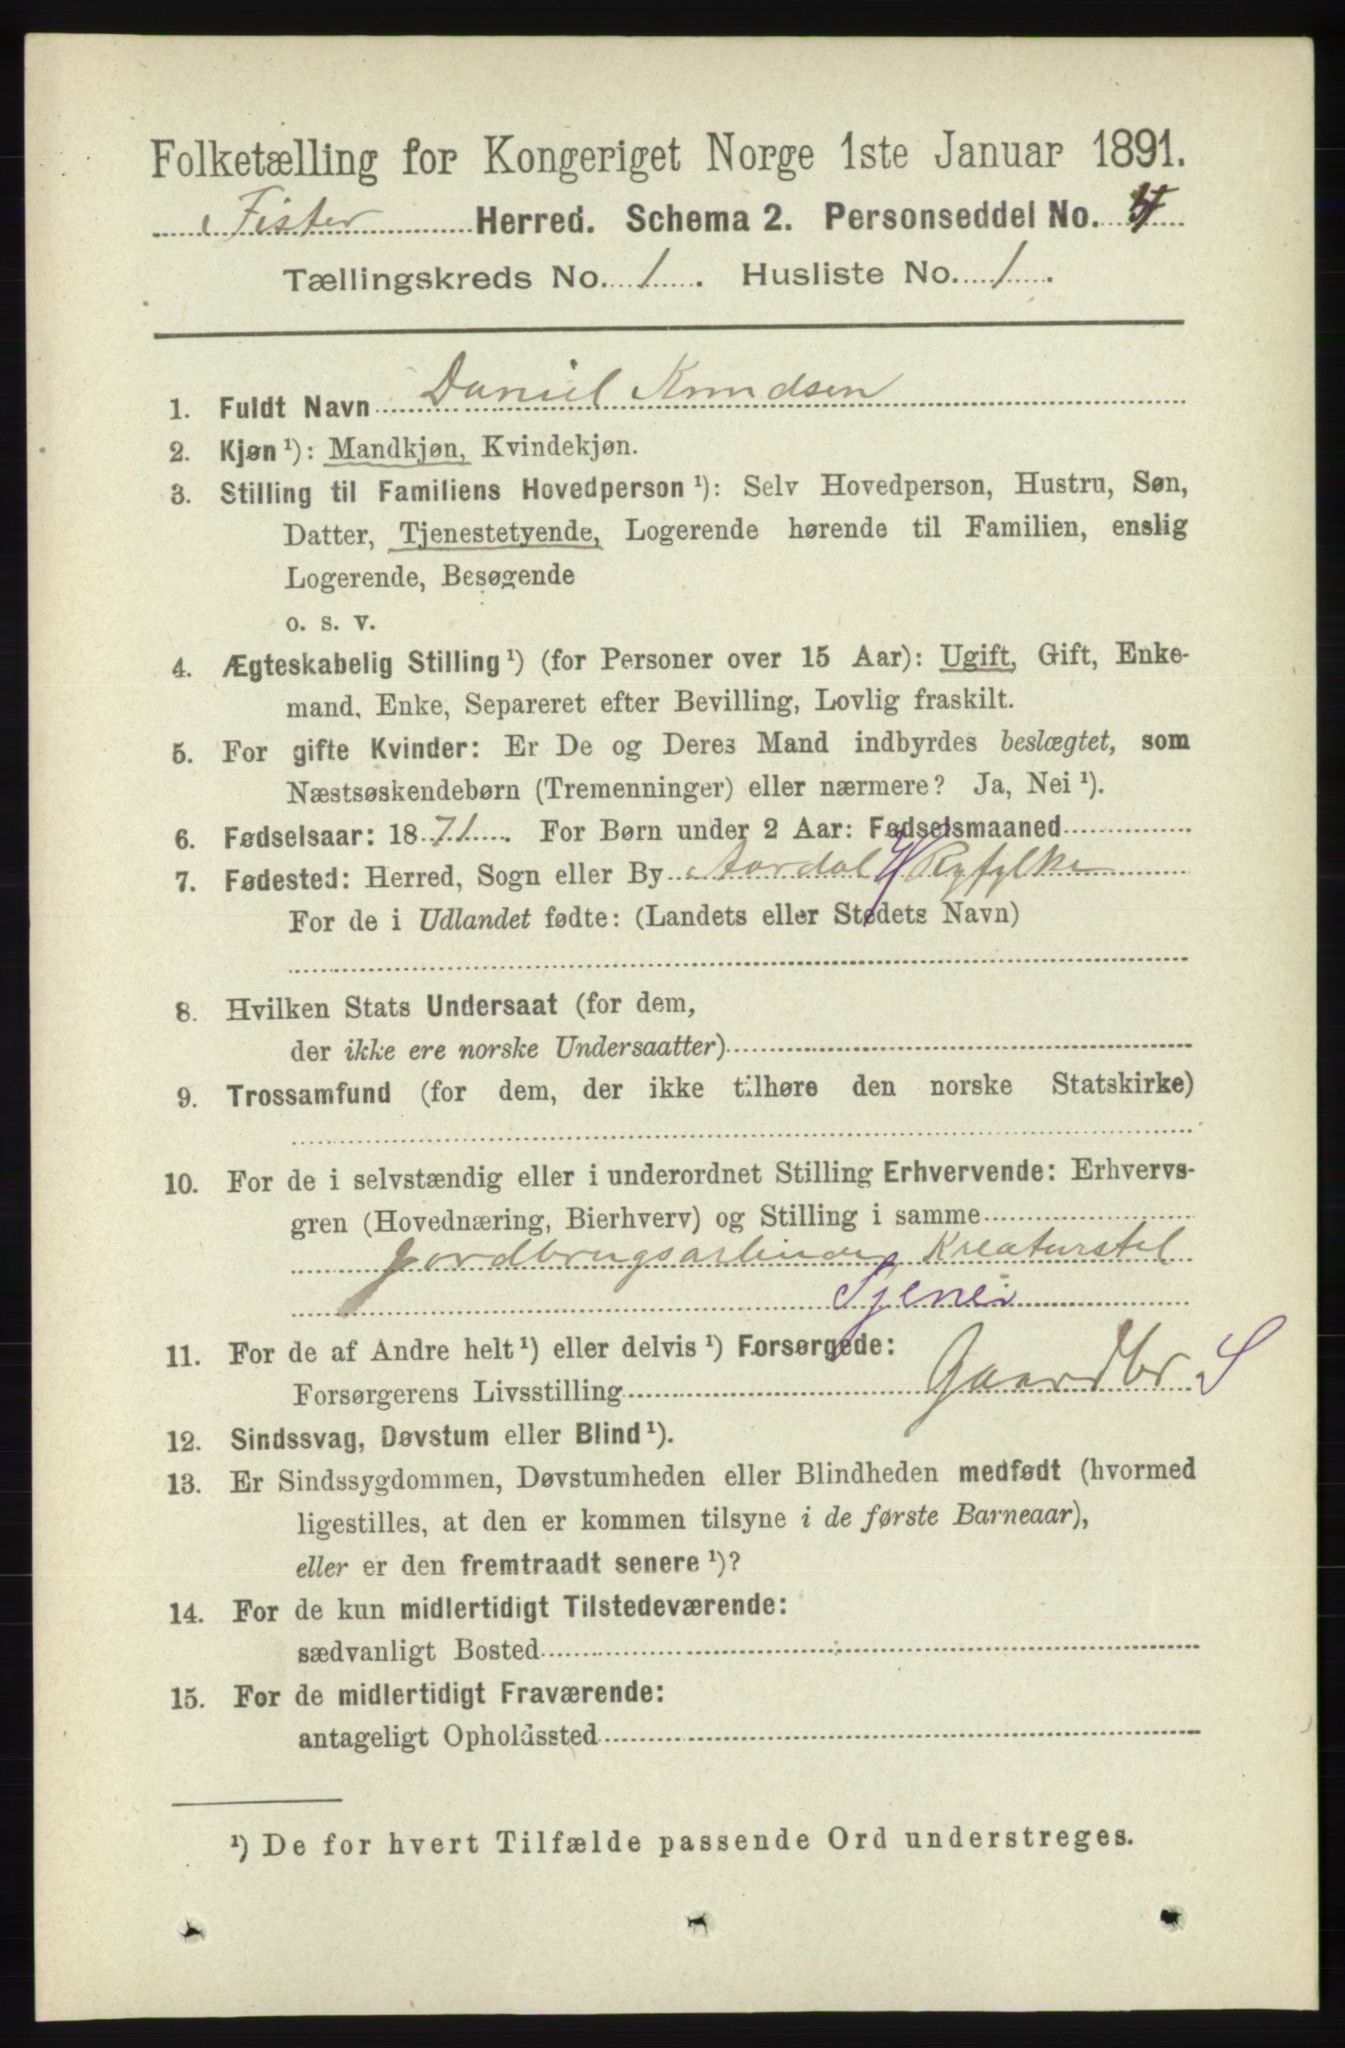 Folketælling for Kongeriget Norge 1ste Januar 1891.
Fister Herred. Schema 2. Personseddel No. 4
Tællingskreds No. 1. Husliste No. 1.
1. Fuldt Navn Daniel Knudsen
2. Kjøn ¹): Mandkjøn, Kvindekjøn.
3. Stilling til Familiens Hovedperson ¹): Selv Hovedperson, Hustru, Søn,
Datter, Tjenestetyende, Logerende hørende til Familien, enslig
Logerende, Besøgende
o. s. v.
4. Ægteskabelig Stilling ¹) (for Personer over 15 Aar): Ugift, Gift, Enke-
mand, Enke, Separeret efter Bevilling, Lovlig fraskilt.
5. For gifte Kvinder: Er De og Deres Mand indbyrdes beslægtet, som
Næstsøskendebørn (Tremenninger) eller nærmere? Ja, Nei ¹).
6. Fødselsaar: 1871. For Børn under 2 Aar: Fødselsmaaned
7. Fødested: Herred, Sogn eller By Aardal Ryfylke
For de i Udlandet fødte: (Landets eller Stedets Navn)
8. Hvilken Stats Undersaat (for dem,
der ikke ere norske Undersaatter)
9. Trossamfund (for dem, der ikke tilhøre den norske Statskirke)
10. For de i selvstændig eller i underordnet Stilling Erhvervende: Erhvervs-
gren (Hovednæring, Bierhverv) og Stilling i samme
Jordbrugsarbeider Kreaturstel
Tjener
11. For de af Andre helt ¹) eller delvis ¹) Forsørgede:
Forsørgerens Livsstilling Gaardbr S
12. Sindssvag, Døvstum eller Blind ¹).
13. Er Sindssygdommen, Døvstumheden eller Blindheden medfødt (hvormed
ligestilles, at den er kommen tilsyne i de første Barneaar),
eller er den fremtraadt senere ¹)?
14. For de kun midlertidigt Tilstedeværende:
sædvanligt Bosted
15. For de midlertidigt Fraværende:
antageligt Opholdssted
¹) De for hvert Tilfælde passende Ord understreges.